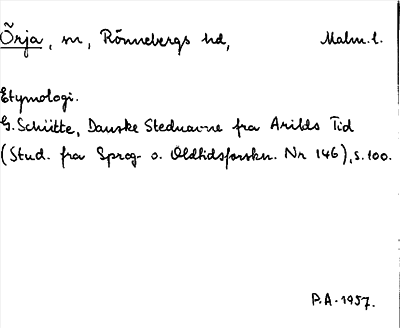 Örja, sn, Rönnebergs hd, Malm.l.
Etymologi.
G. Schütte, Danske Stednavne fra Arilds Tid
(Stud. fra Sprog- o. Oldtidsforskn. Nr 146), s. 100.
P.A. 1957.